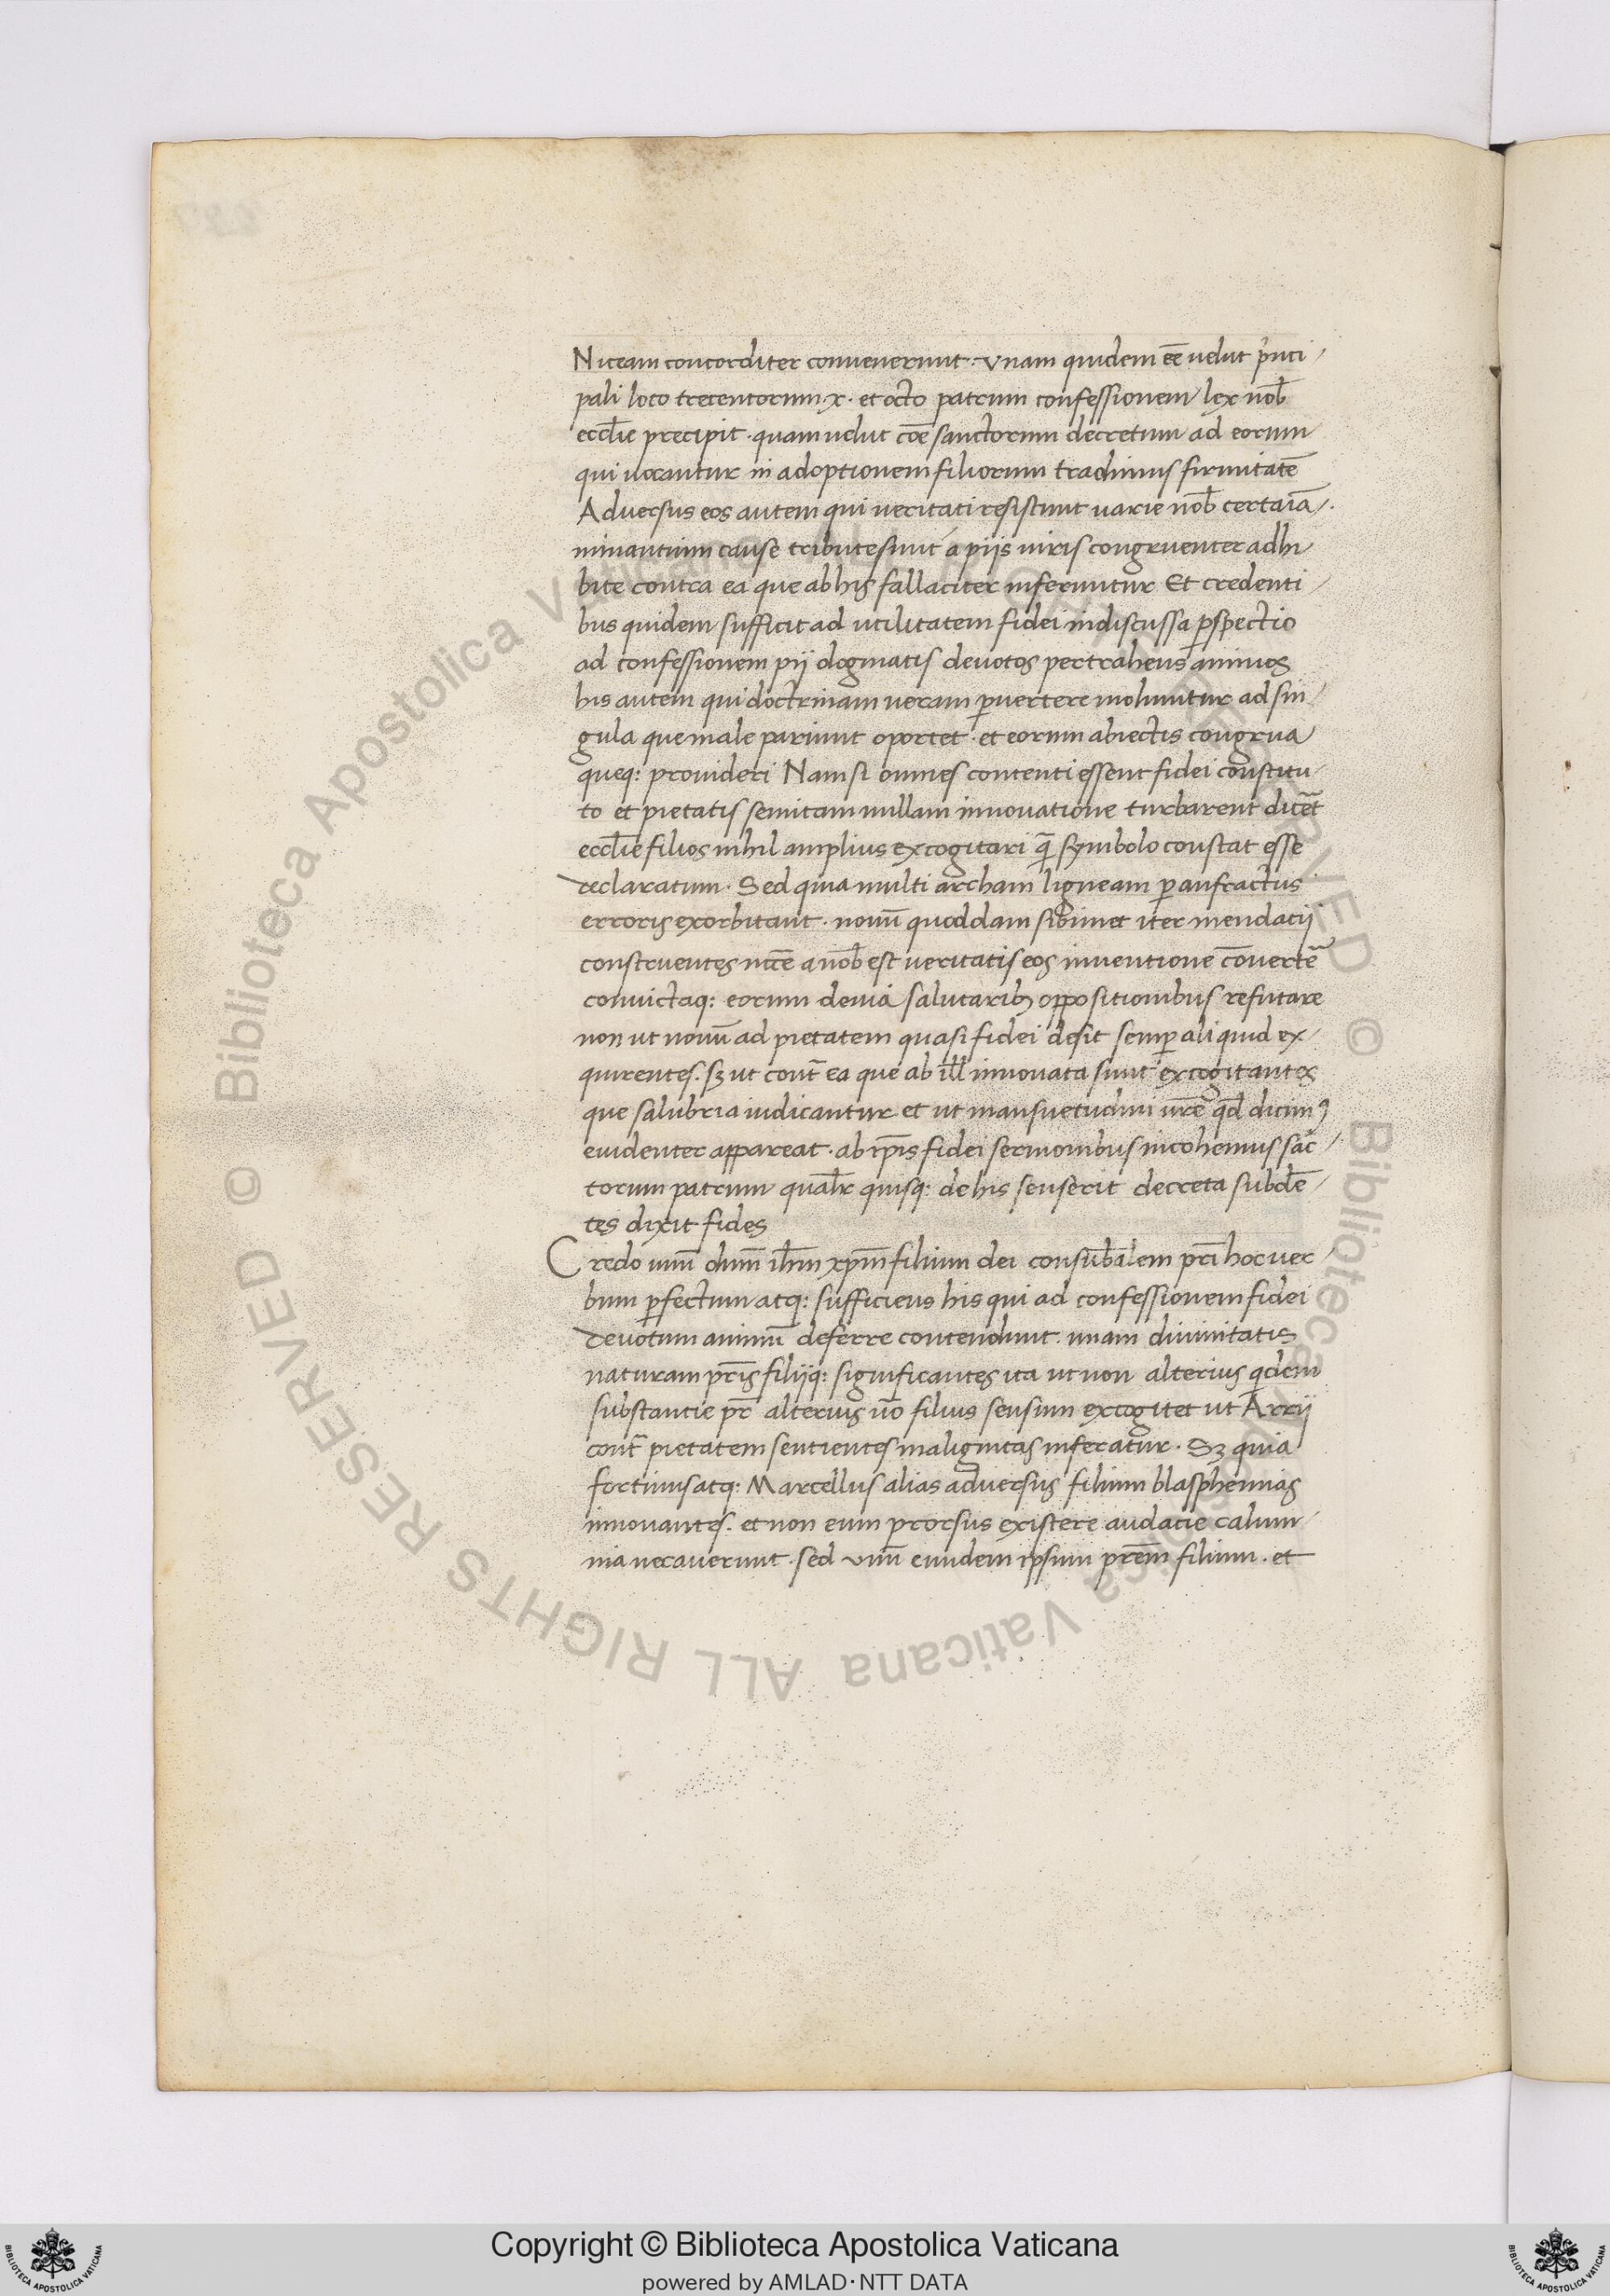 Niceam concorditer convenerunt · Unam quidem eē uelut p̄nci
pali loco trecentorum · x · et octo patrum confessionem lex nob̄
eccl̄ie precipit · quam uelut cōe sanctorum decretum ad eorum
qui uocantur in adoptionem filiorum tradimus firmitatē
Adversus eos autem qui ueritati resistunt uarie nob̄ certaīa
minantium cause tribute sunt a piis uiris congruenter adhi
bite contra ea que ab his fallaciter inferuntur Et credenti
bus quidem sufficit ad utilitatem fidei indiscussa p̱spectio
ad confessionem pij dogmatis deuotos pertrahens animos
his autem qui doctrinam ueram p̱uertere moliuntur ad sin
gula que male pariunt oportet · et eorum abiectis congrua
queq: prouideri Nam si omnes contenti essent fidei constitu
to et pietatis semitam nullam innouatione turbarent dicēt
eccl̄ie filios nihil amplius excogitari q̄ symbolo constat esse
declaratum · Sed quia multi archam ligneam p̱ anfractus
erroris exorbitant · nouū quoddam sibimet iter mendacij
construentes nccē a nob̄ est ueritatis eos inuentione cōuertē
convictaq: eorum deuia salutarib; oppositionibus refutare
non ut nouū ad pietatem quasi fidei desit semp̱ aliquid ex
quirentes · sʒ ut cont̄ ea que ab ill̄ innouata sunt excogitantes
que salubria iudicantur et ut mansuetudini ur̄e qd̄ dicimꝰ
euidenter appareat · ab ip̄is fidei sermonibus incohemus sāc
torum patrum qual̄r quisq: de his senserit decreta subdē
tes dixit fides
Credo unū dnm̄ ih̄m xp̄m filium dei consub̄alem pr̄i hoc uer
bum p̱fectum atq: sufficiens his qui ad confessionem fidei
deuotum animū deferre contendunt · unam diuinitatis
naturam pr̄is filijq: significantes ita ut non alterius qdem
substantie pr̄ alterius ūo filius sensum excogitet ut Arrij
cont̄ pietatem sentientes malignitas inferatur · Sʒ quia
fortinus atq: Marcellus alias adversus filium blasphemias
innouantes · et non eum prorsus existere audacie calum
nia necauerunt · sed unū eundem ipsum pr̄em filium · et
Copyright © Biblioteca Apostolica Vaticana
powered by AMLAD·NTT DATA
© Biblioteca Apostolica Vaticana ALL RIGHTS RESERVED
© Biblioteca Apostolica Vaticana ALL RIGHTS RESERVED
BIBLIOTECA APOSTOLICA VATICANA
BIBLIOTECA APOSTOLICA VATICANA